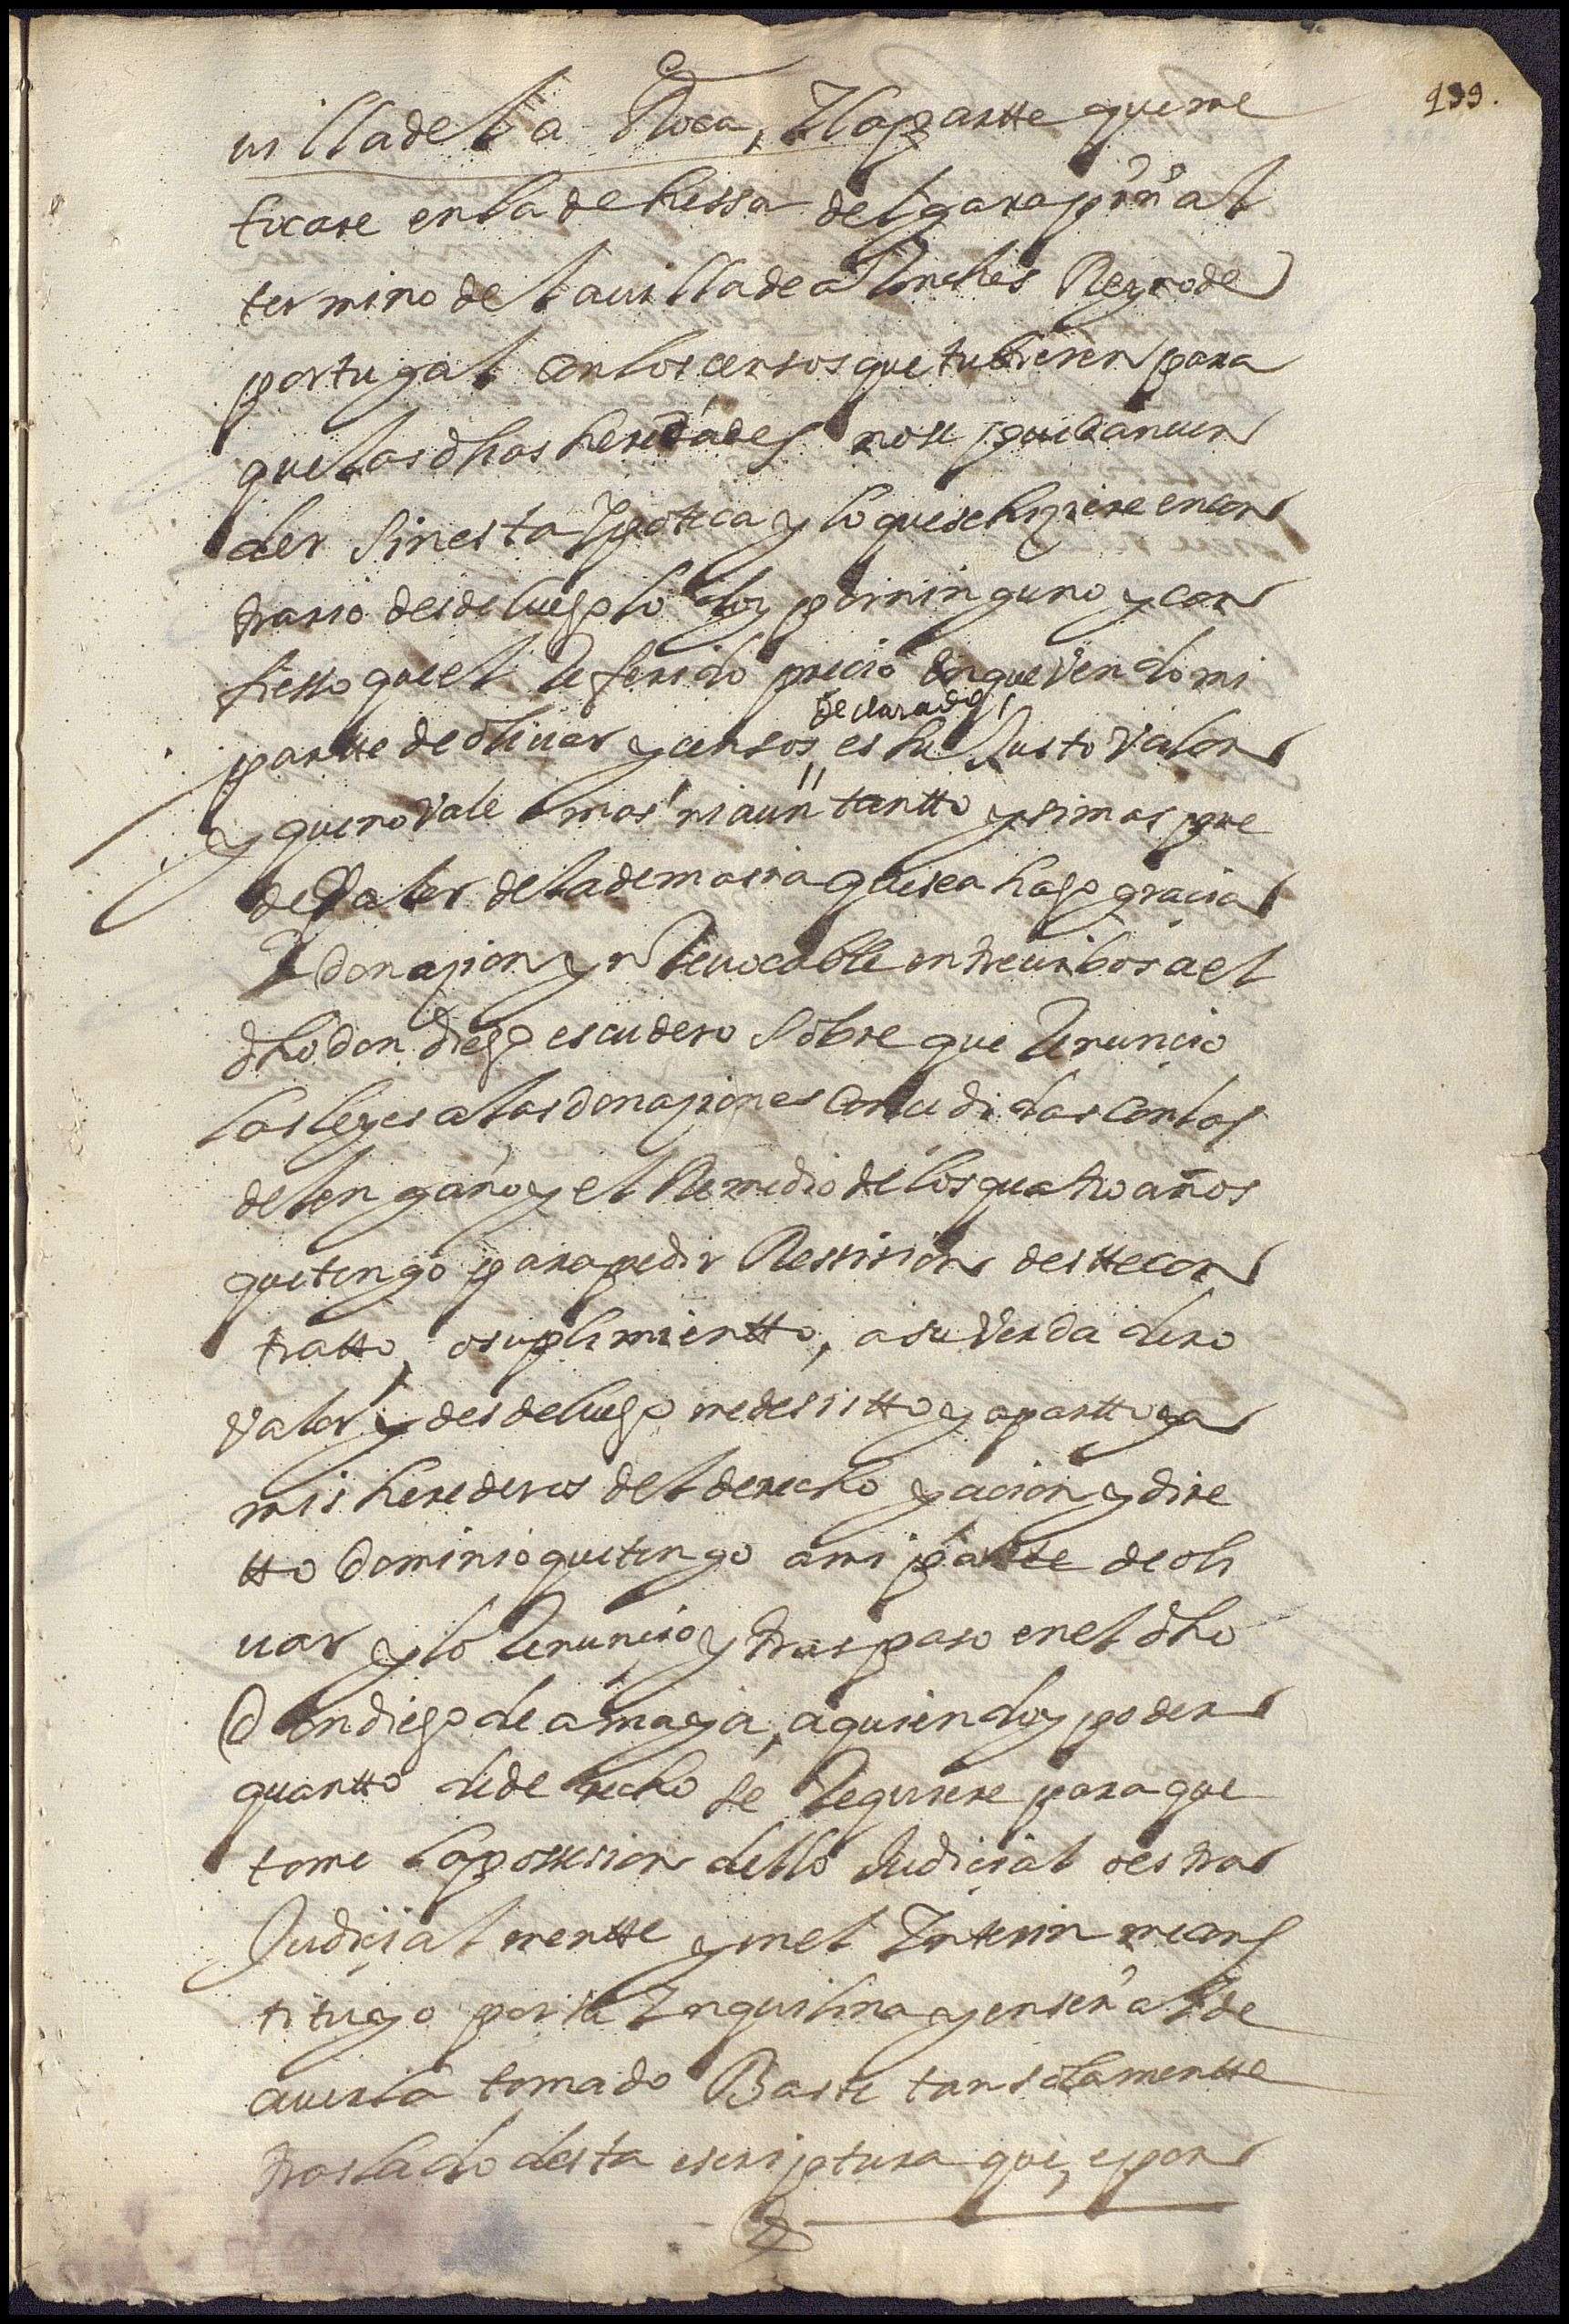 199.
villa de La Roca, Y la partte que me
tocare en la dehessa del
termino de la villa de alconchel Reyno de
portugal con los censos que tubieren para
que las dhas heredades no se puedan ven
der sin esta Ypotteca y lo que se hiziere en con
trario desde luego lo doy por ninguno y con
fiesso que el referido precio En que Vendo mi
declarados
partte de olivar y censos es su Justo Valor
y que no Vale mas ni aun tantto y si mas pue
de Valer de la demasia que sea hago gracia
Y donazion yrrevocable entre vibos a el
dho don diego escudero sobre que Renuncio
las leyes a las donaziones concedidas con las
del engaño y el Remedio de los quatro años
que tengo para pedir Ressision destte con
tratto, o suplimientto, a su Verdadero
Valor y desde luego me desistto y apartto y a
mis herederos del derecho y acion y dire
tto Dominio que tengo a mi parte de oli
var y lo Renuncio y traspaso en el dho
Don diego de amaya, a quien doy poder
quantto de derecho se Requiere para que
tome la possesion dello Judicial o estra
Judicialmentte y en el Ynterin me cons
tituyo por su Ynquilina y en señal de
averla tomado Baste tan solamentte
traslado desta escriptura que, e por